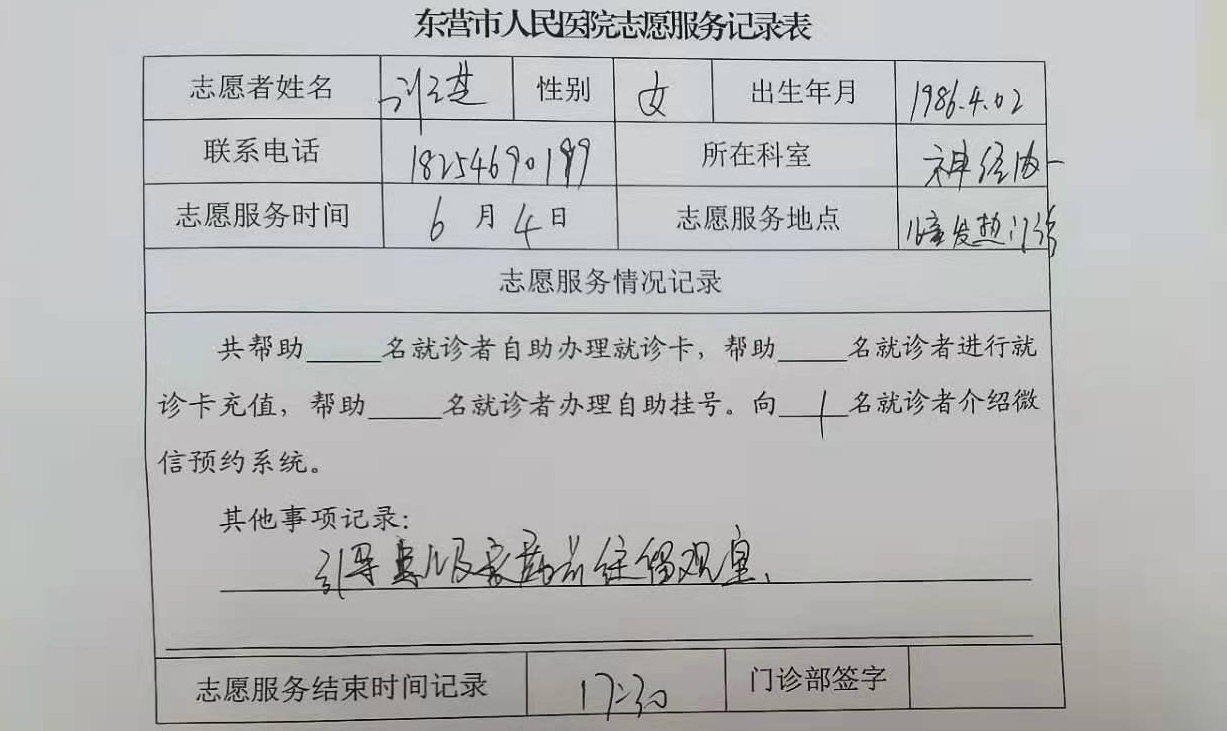 东营市人民医院志愿服务记录表
志愿者姓名 性别 女 出生年月 1986.4.02
联系电话 18254690199 所在科室 神经内一
志愿服务时间 6月4日 志愿服务地点 儿童发热门诊
志愿服务情况记录
共帮助_____名就诊者自助办理就诊卡，帮助_____名就诊者进行就
诊卡充值，帮助_____名就诊者办理自助挂号。向__1__名就诊者介绍微
信预约系统。
其他事项记录：
引导患儿及家属前往留观室、
志愿服务结束时间记录 17:30 门诊部签字